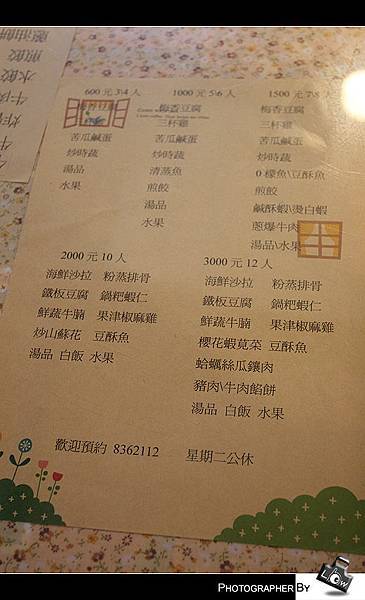 蔥油餅
煎餃
水餃
600 元 3\4 人
三杯雞
苦瓜鹹蛋
炒時蔬
湯品
水果
1000 元 5\6 人
梅香豆腐
三杯雞
苦瓜鹹蛋
炒時蔬
清蒸魚
煎餃
湯品
水果
1500 元 7\8 人
梅香豆腐
三杯雞
苦瓜鹹蛋
炒時蔬
檸檬魚\豆酥魚
煎餃
鹹酥蝦\燙白蝦
蔥爆牛肉
湯品\水果
2000 元 10 人
海鮮沙拉 粉蒸排骨
鐵板豆腐 鍋粑蝦仁
鮮蔬牛腩 果津椒麻雞
炒山蘇花 豆酥魚
湯品 白飯 水果
3000 元 12 人
海鮮沙拉 粉蒸排骨
鐵板豆腐 鍋粑蝦仁
鮮蔬牛腩 果津椒麻雞
櫻花蝦莧菜 豆酥魚
蛤蠣絲瓜鑲肉
豬肉\牛肉餡餅
湯品 白飯 水果
歡迎預約 8362112 星期二公休
PHOTOGRAPHER BY